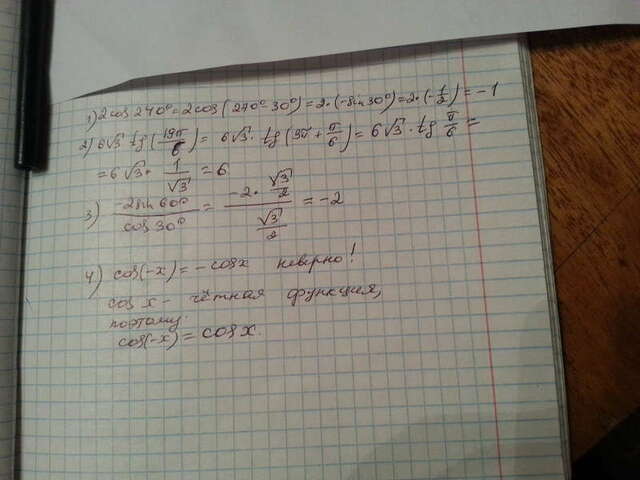 1) 2cos 240° = 2cos (270° - 30°) = 2·(-sin 30°) = 2·(-1/2) = -1
2) 6√3 tg (19π/6) = 6√3 · tg (3π + π/6) = 6√3 · tg π/6 =
= 6√3 · 1/√3 = 6
3) -2sin 60°/cos 30° = (-2 · √3/2)/(√3/2) = -2
4) cos(-x) = -cos x неверно!
cos x - чётная функция,
поэтому:
cos(-x) = cos x.